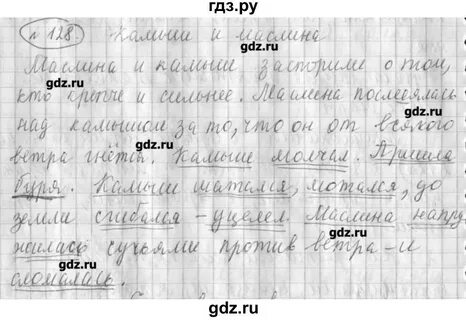 гдз.ру
п 128. Камыш и маслина
Маслина и камыш заспорили о том,
кто крепче и сильнее. Маслина посмеялась
над камышом за то, что он от всякого
ветра гнётся. Камыш молчал. Пришла
буря. Камыш шатался, мотался, до
земли сгибался - уцелел. Маслина напру
жилась сучьями против ветра - и
сломалась.
gdz.ru
gdz.ru
gdz.ru
gdz.ru
gdz.ru
gdz.ru
gdz.ru
gdz.ru
gdz.ru